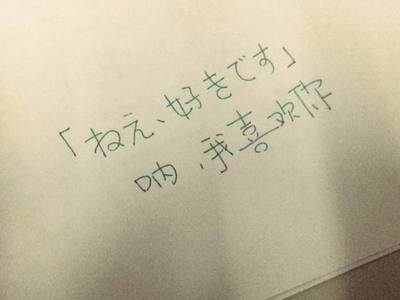 「ねえ、好きです」
呐、我喜欢你